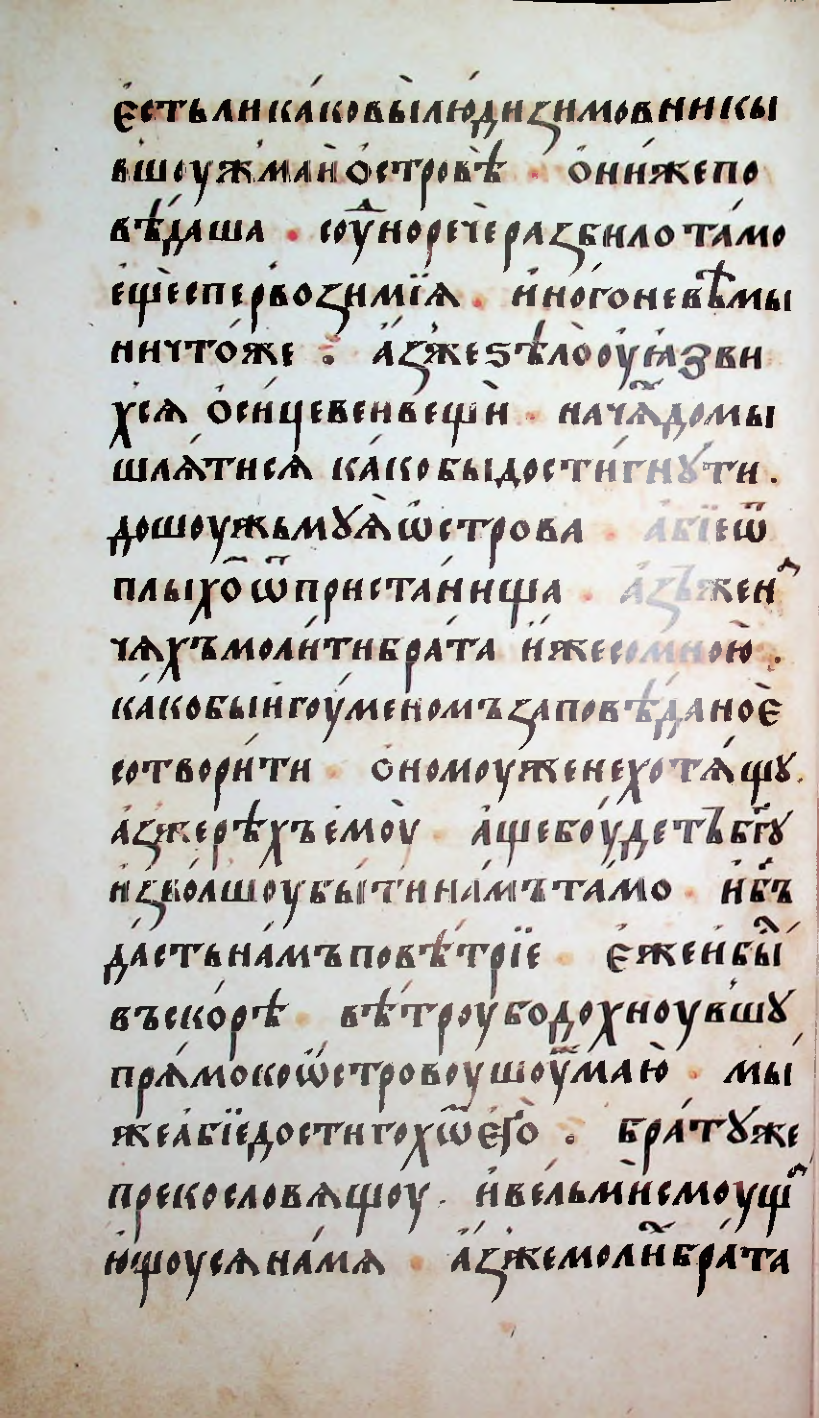 є҆стьлика́ковы̀лю́дизимовникы
вшоужма́нѝо҆стро́вѣ. ѻ҆ни́жепо
вѣ́даша. соу́дноречѐразбилота́мо
є҆щеспе́рвозимїѧ. и҆но́гоневѣ́мы
ничто́же. а҆́зжеѕѣлооуꙗзви
хсѧ ѻ҆си́цевеивещѝ. нача́хдомы
шлѧ́тисѧ ка́кобыдости́гнꙋти.
дошоужьмꙋѧ̀ѡ҆строва. а҆бїеѿ
плыхо́мѿпристани́ща. а҆зъжен
чѧхъмоли́тибра́та и҆́жесомною̀.
ка́кобыи҆гоу́меномъзаповѣ́даноѐ
сотвори́ти. ѻ҆номоуженехотѧ́щꙋ.
а҆́зжерѣ́хъе҆моу̀. а҆́щебоу́детьбг҃ꙋ
и҆зво́лшоубы́тина́мъта́мо. и҆бг҃ъ
да́стьна́мъповѣ́трїе. є҆́жеи҆бы́сть
въско́рѣ. вѣ́троубодохноувшꙋ
прѧ́мокоѡ҆́стровоушоу́жмаю̀. мы́
жеа҆бїедостигохѡ́мє҆гѡ̀. бра́тꙋже
прекословѧщоу. и҆ве́льмѝсмоущ
ю҆щоусѧна́мѧ. а҆́зжемоли́хбра́та